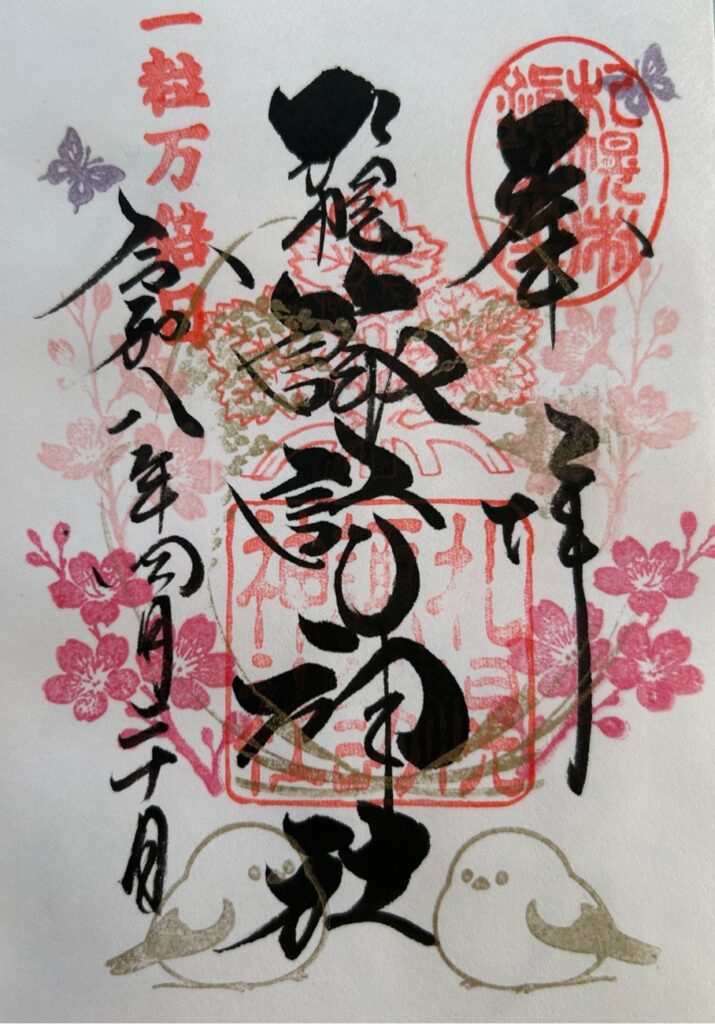 奉拝
札幌諏訪神社
札幌
諏訪
神社
一粒万倍日
令和八年四月二十日